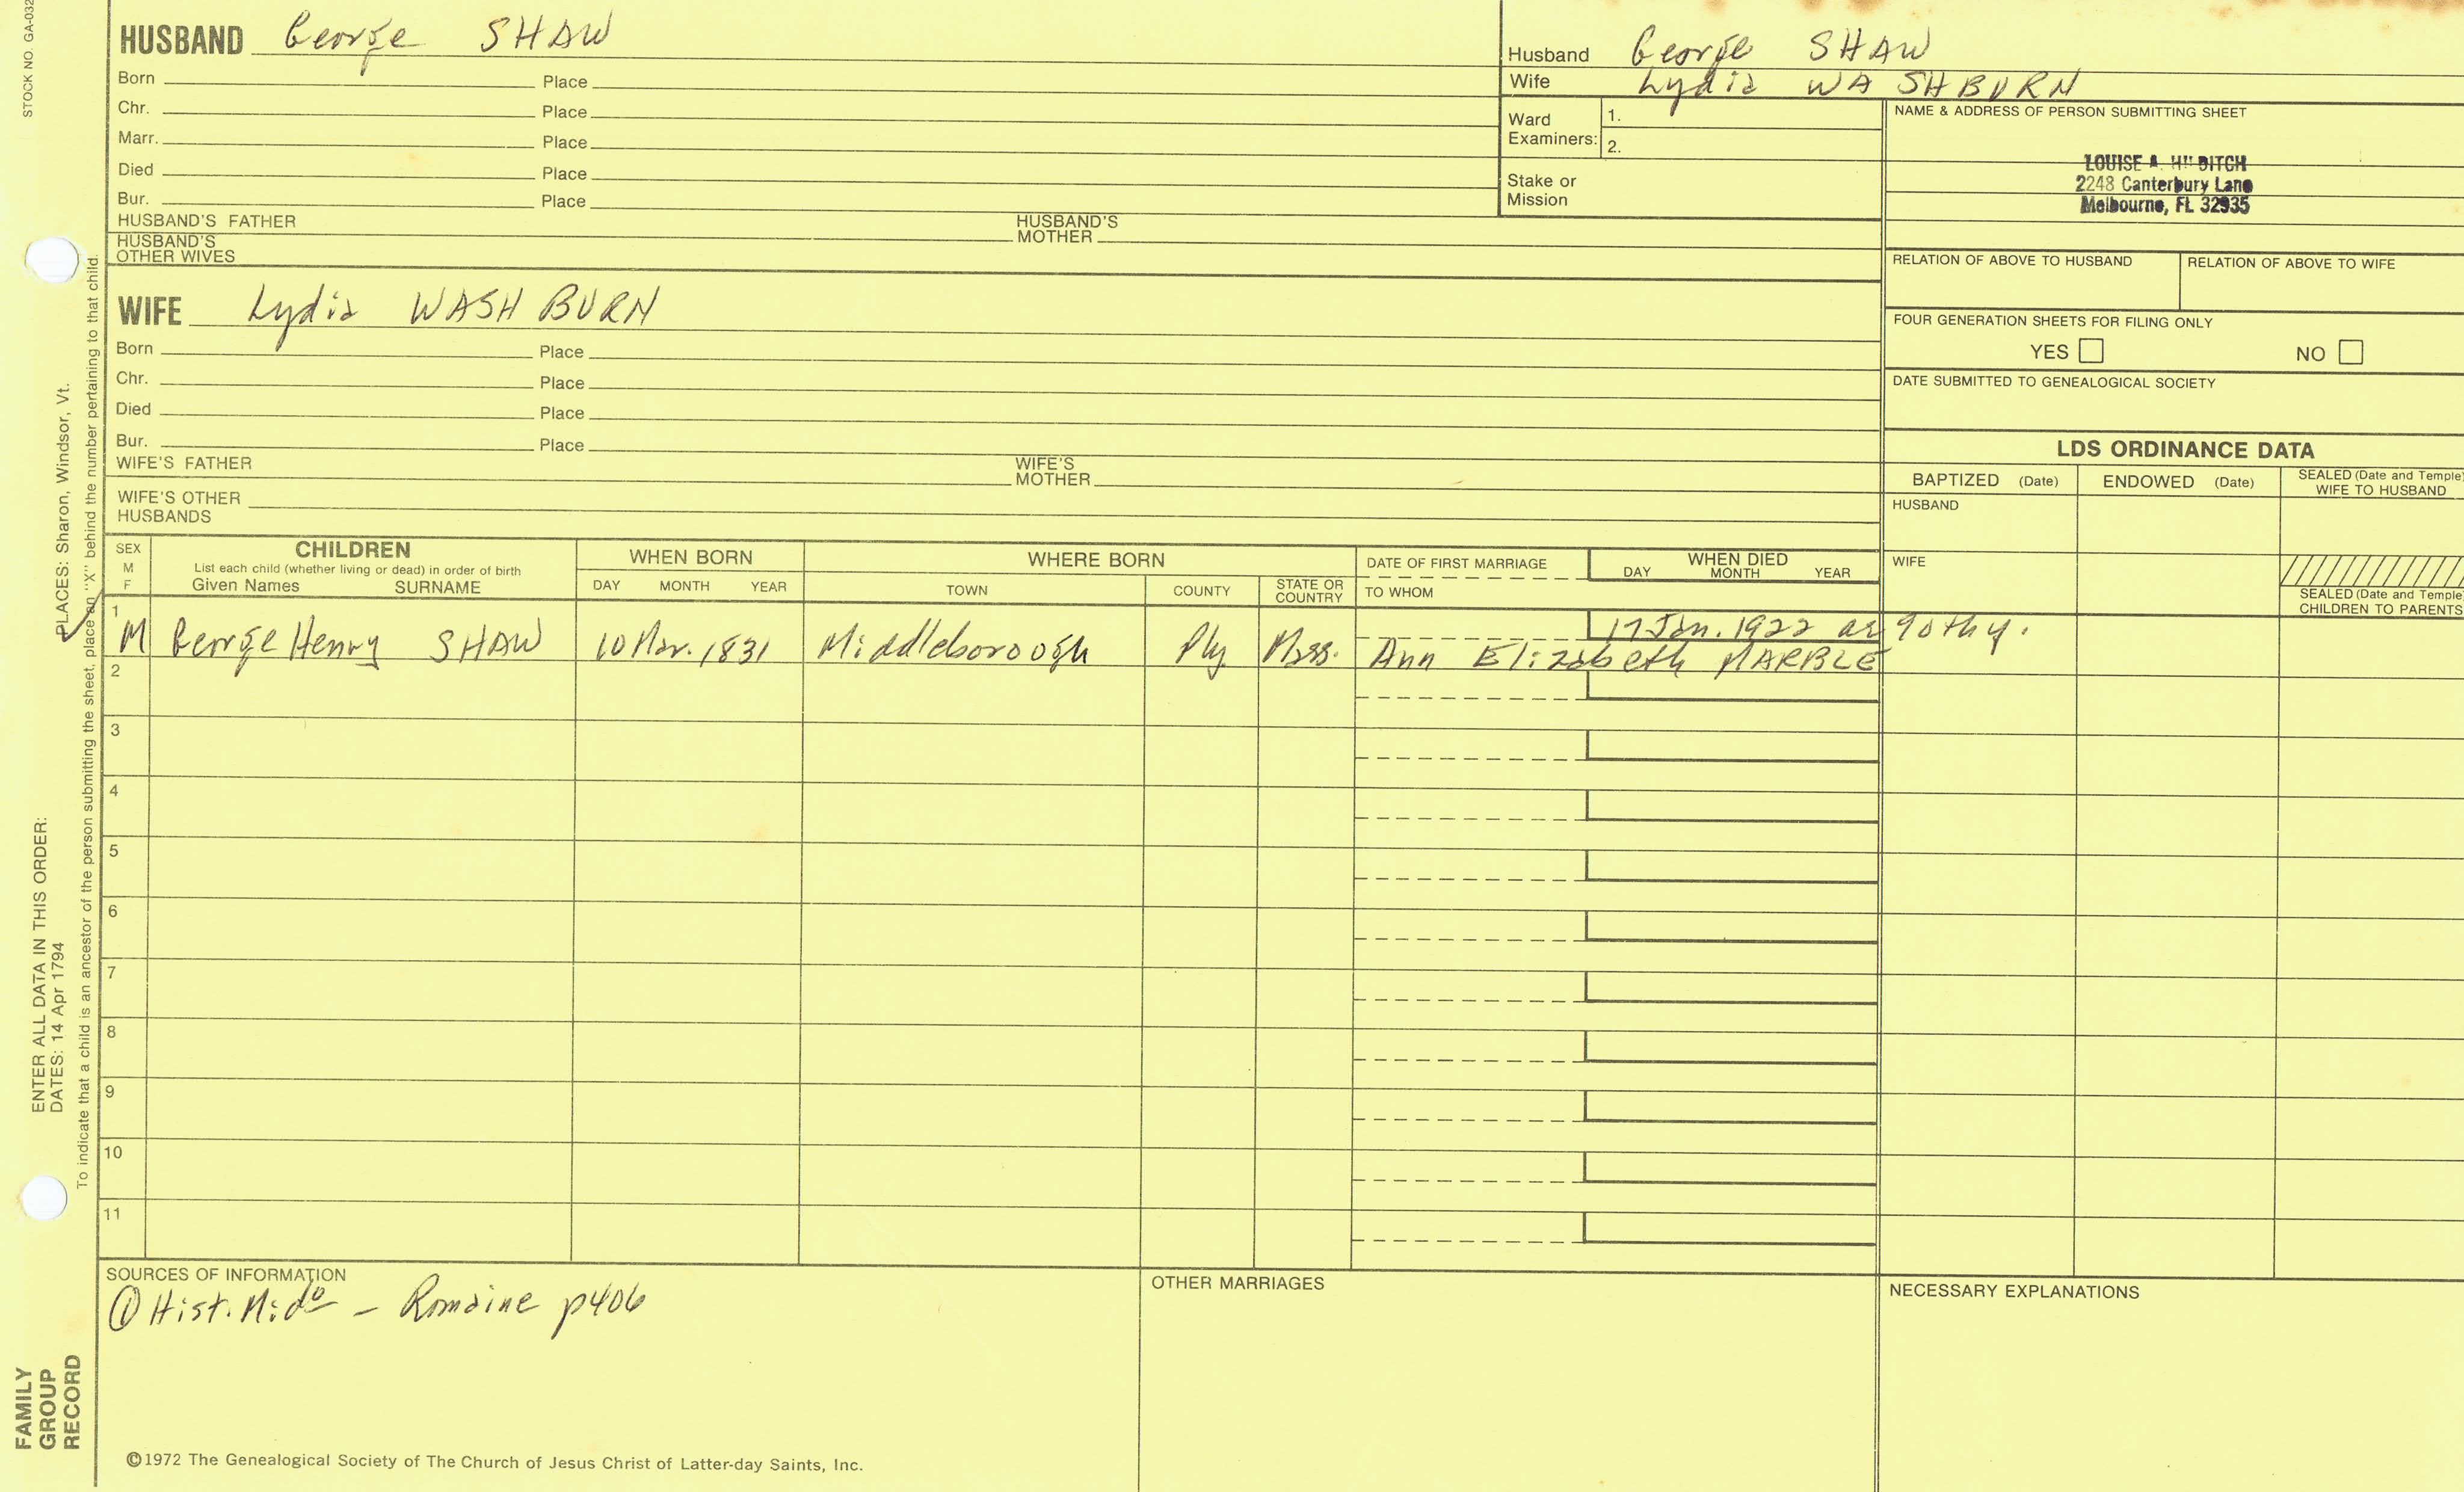 STOCK NO. GA-032
HUSBAND George SHAW
Born Place
Chr. Place
Marr. Place
Died Place
Bur. Place
HUSBAND'S FATHER HUSBAND'S MOTHER
HUSBAND'S OTHER WIVES
Husband George SHAW
Wife Lydia WASHBURN
Ward Examiners: 1.
2.
Stake or Mission
NAME & ADDRESS OF PERSON SUBMITTING SHEET
LOUISE A.
2248 Canterbury Lane
Melbourne, FL 32935
RELATION OF ABOVE TO HUSBAND RELATION OF ABOVE TO WIFE
FOUR GENERATION SHEETS FOR FILING ONLY
YES NO
DATE SUBMITTED TO GENEALOGICAL SOCIETY
WIFE Lydia WASHBURN
Born Place
Chr. Place
Died Place
Bur. Place
WIFE'S FATHER WIFE'S MOTHER
WIFE'S OTHER HUSBANDS
LDS ORDINANCE DATA
BAPTIZED (Date) ENDOWED (Date) SEALED (Date and Temple)
WIFE TO HUSBAND
HUSBAND
WIFE
SEALED (Date and Temple)
CHILDREN TO PARENTS
SEX M F
CHILDREN
List each child (whether living or dead) in order of birth
Given Names SURNAME
WHEN BORN
DAY MONTH YEAR
WHERE BORN
TOWN COUNTY STATE OR COUNTRY
DATE OF FIRST MARRIAGE
TO WHOM
WHEN DIED
DAY MONTH YEAR
1 17 Jan. 1922 ae 90thy.
M George Henry SHAW 10 Mar. 1831 Middleboroogh Ply Mass. Ann Elizabeth MARBLE
2
3
4
5
6
7
8
9
10
11
SOURCES OF INFORMATION
① Hist. Midº - Romaine p406
OTHER MARRIAGES
NECESSARY EXPLANATIONS
©1972 The Genealogical Society of The Church of Jesus Christ of Latter-day Saints, Inc.
FAMILY
GROUP
RECORD
ENTER ALL DATA IN THIS ORDER:
DATES: 14 Apr 1794
PLACES: Sharon, Windsor, Vt.
To indicate that a child is an ancestor of the person submitting the sheet, place an "X" behind the number pertaining to that child.